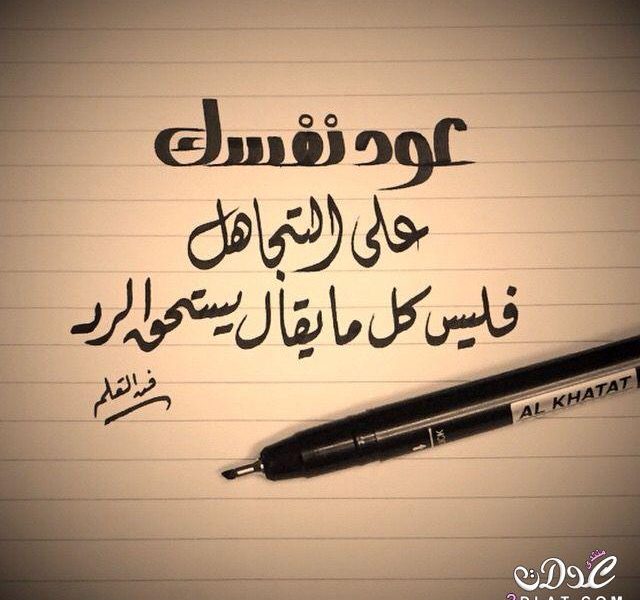 عود نفسك
على التجاهل
فليس كل ما يقال يستحق الرد
فن القلم
AL KHATAT
منتدى
عدلات
3DLAT.COM